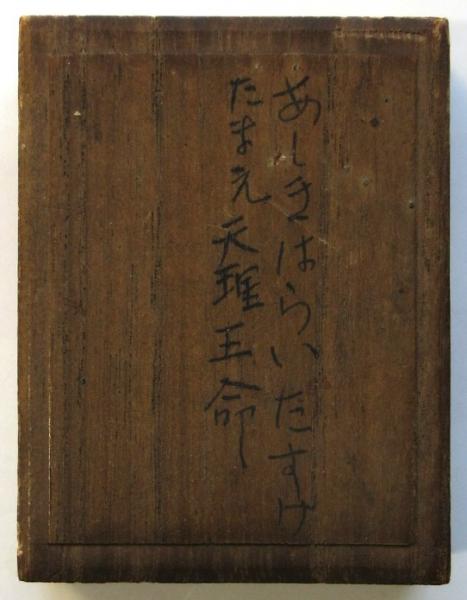 あしきはらいたすけ
たまえ天理王命